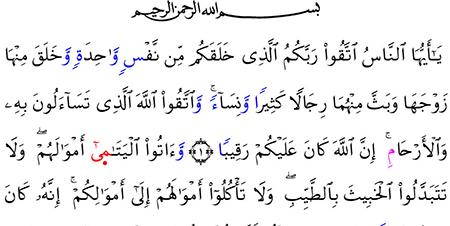 بسم الله الرحمن الرحيم
يَـٰٓأَيُّهَا ٱلنَّاسُ ٱتَّقُوا۟ رَبَّكُمُ ٱلَّذِى خَلَقَكُم مِّن نَّفْسٍ وَٰحِدَةٍ وَخَلَقَ مِنْهَا
زَوْجَهَا وَبَثَّ مِنْهُمَا رِجَالًا كَثِيرًا وَنِسَآءً ۚ وَٱتَّقُوا۟ ٱللَّهَ ٱلَّذِى تَسَآءَلُونَ بِهِۦ
وَٱلْأَرْحَامِ ۚ إِنَّ ٱللَّهَ كَانَ عَلَيْكُمْ رَقِيبًا ۝١ وَءَاتُوا۟ ٱلْيَتَـٰمِىٓ أَمْوَٰلَهُمْ ۖ وَلَا
تَتَبَدَّلُوا۟ ٱلْخَبِيثَ بِٱلطَّيِّبِ ۖ وَلَا تَأْكُلُوٓا۟ أَمْوَٰلَهُمْ إِلَىٰٓ أَمْوَٰلِكُمْ ۚ إِنَّهُۥ كَانَ